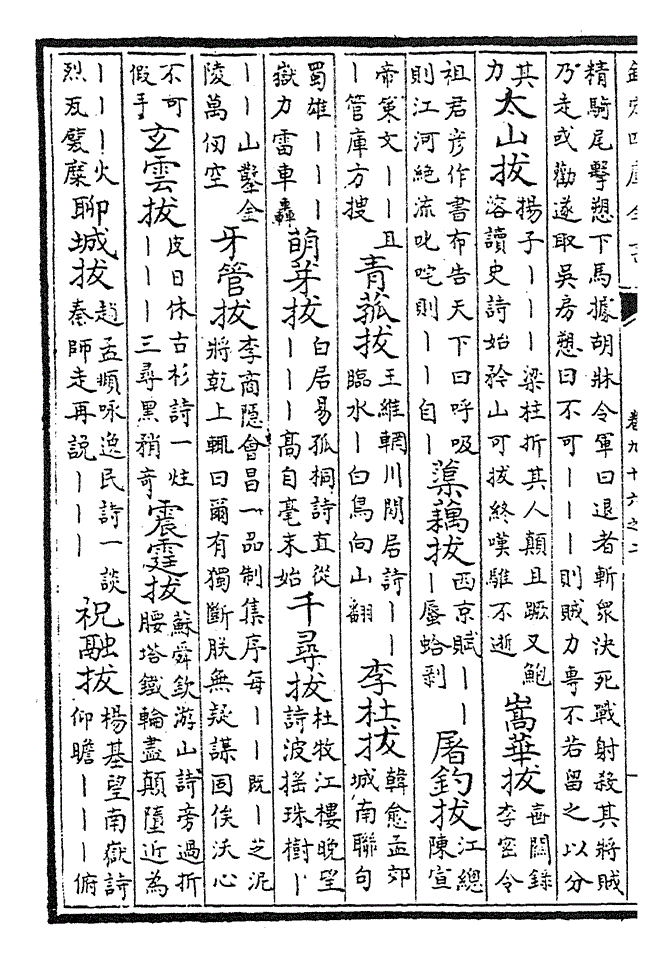 欽定四庫全書
卷九十六之二
精騎尾擊愬下馬據胡牀令軍曰退者斬眾決死戰射殺其將賊
乃走或勸遂取吳房愬曰不可丨丨丨則賊力專不若留之以分
其力 太山拔 揚子丨丨丨梁柱折其人顛且蹶又鮑溶讀史詩始矜山可拔終嘆騅不逝 嵩華拔 壺關録李密令
祖君彦作書布告天下曰呼吸則江河絶流叱咤則丨丨自丨 蕖藕拔 西京賦丨丨丨蜃蛤剥 屠釣拔 江總陳宣
帝策文丨丨且丨管庫方搜 青菰拔 王維輞川閒居詩丨丨臨水丨白鳥向山翻 李杜拔 韓愈孟郊城南聯句
蜀雄丨丨丨嶽力雷車轟 萌芽拔 白居易孤桐詩直從丨丨丨髙自毫末始 千尋拔 杜牧江樓晚望詩波揺珠樹丨
丨丨山鑿金陵萬仞空 牙管拔 李商隱會昌一品制集序每丨丨既丨芝泥將乾上輒曰爾有獨斷朕無疑謀固俟沃心
不可假手 玄雲拔 皮日休古杉詩一炷丨丨丨三尋黑矟奇 震霆拔 蘇舜欽游山詩旁過折腰塔鐵輪盡顛墮近為
丨丨丨火烈瓦甓糜 聊城拔 趙孟頫咏逸民詩一談秦師走再説丨丨丨 祝融拔 楊基望南嶽詩仰瞻丨丨丨俯